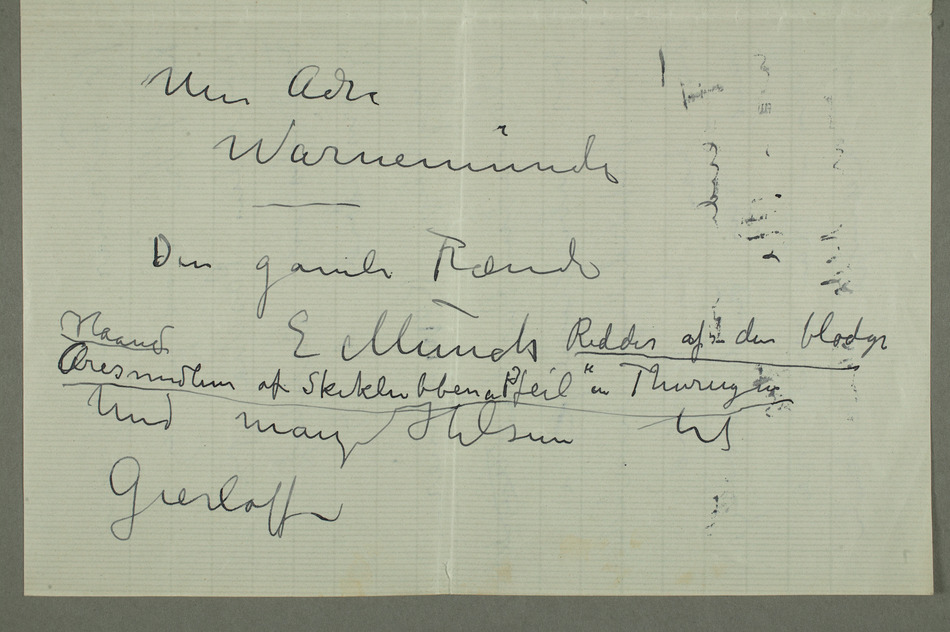 Min Adr
Warnemünde
Din gamle Frænde
E Munch Ridder af den blodge
Haand
Æresmedlem af Skiklubben "Pfeil" in Thuringen
Med mange Hilsener til
Gierløff